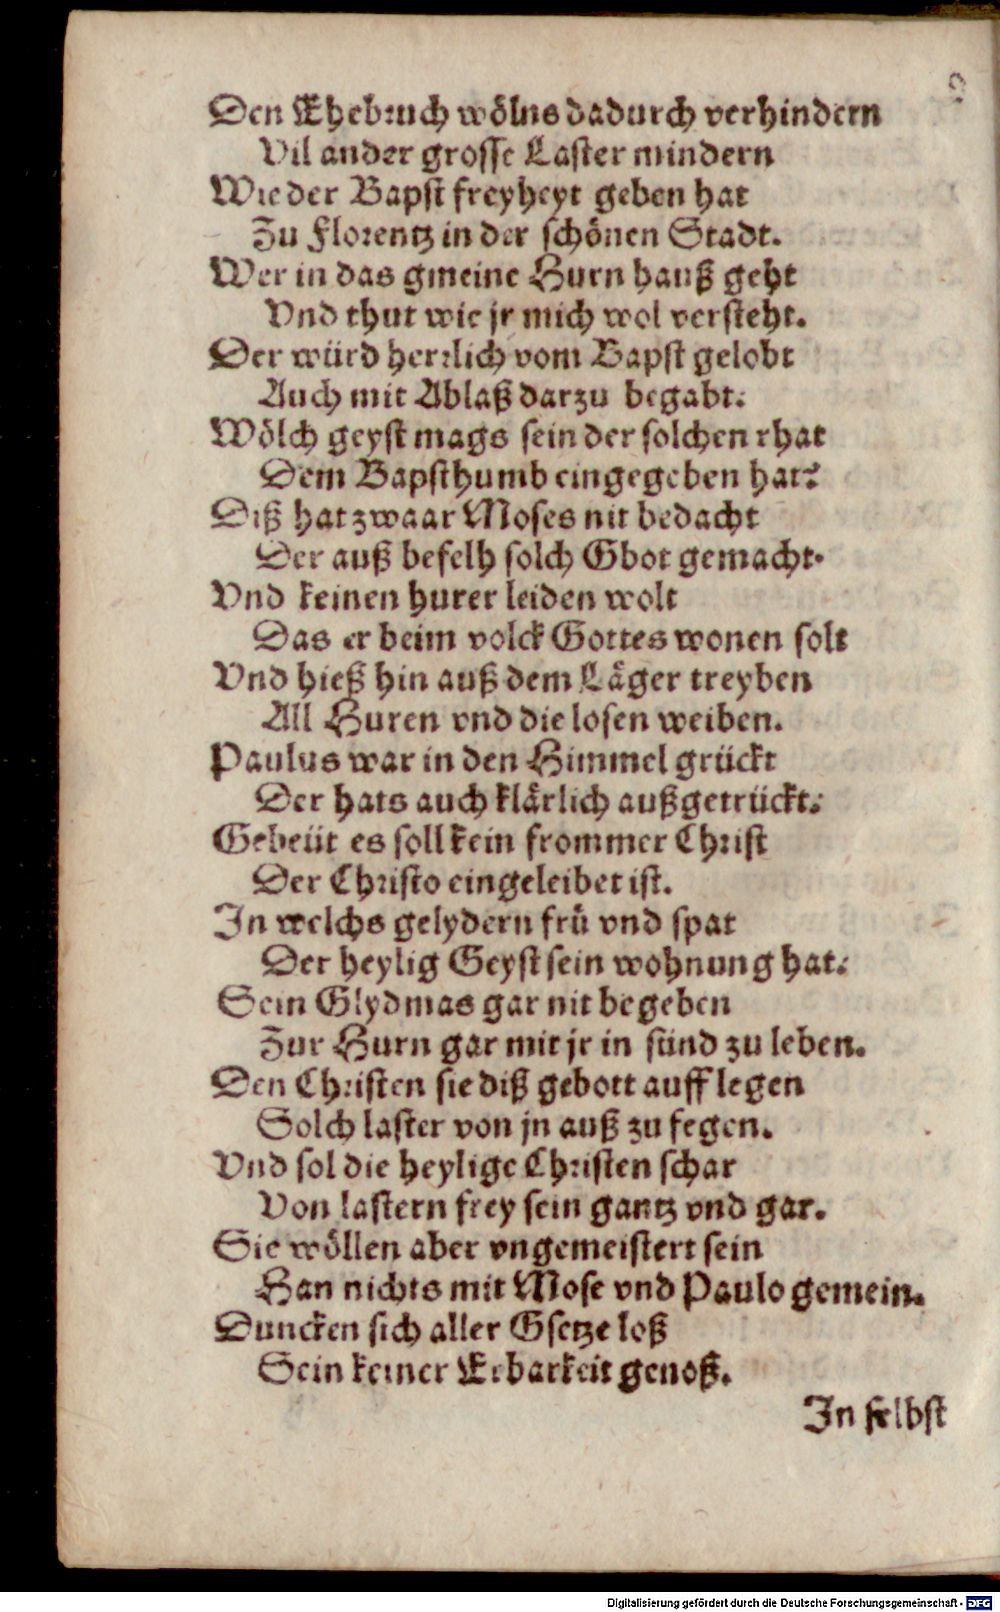 Den Ehebruch wölns dadurch verhindern
Vil ander grosse Laster mindern
Wie der Bapst freyheyt geben hat
Zu Florentz in der schönen Stadt.
Wer in das gmeine Hurn hauß geht
Vnd thut wie jr mich wol versteht.
Der würd herrlich vom Bapst gelobt
Auch mit Ablaß darzu begabt.
Wölch geyst mags sein der solchen rhat
Dem Bapsthumb eingegeben hat?
Diß hat zwaar Moses nit bedacht
Der auß befelh solch Gbot gemacht.
Vnd keinen hurer leiden wolt
Das er beim volck Gottes wonen solt
Vnd hieß hin auß dem Läger treyben
All Huren vnd die losen weiben.
Paulus war in den Himmel grückt
Der hats auch klärlich außgetrückt.
Gebeüt es soll kein frommer Christ
Der Christo eingeleibet ist.
In welchs gelydern frü vnd spat
Der heylig Geyst sein wohnung hat.
Sein Glydmas gar nit begeben
Zur Hurn gar mit jr in sünd zu leben.
Den Christen sie diß gebott auff legen
Solch laster von jn auß zu fegen.
Vnd sol die heylige Christen schar
Von lastern frey sein gantz vnd gar.
Sie wöllen aber vngemeistert sein
Han nichts mit Mose vnd Paulo gemein.
Duncken sich aller Gsetze loß
Sein keiner Erbarkeit genoß.
In selbst
Digitalisierung gefördert durch die Deutsche Forschungsgemeinschaft - DFG